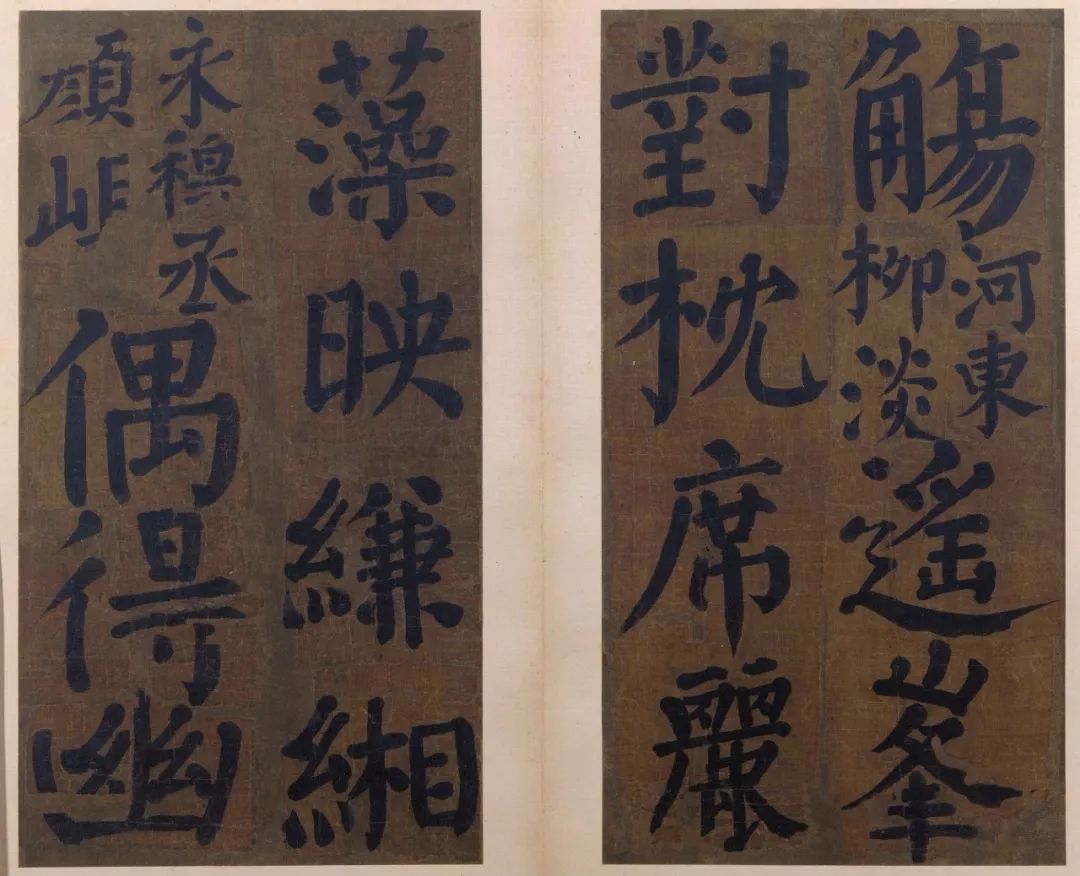 觴
河東
柳淡
遥峯
對枕席麗
藻映縑緗
永穆丞
顔
偶得幽